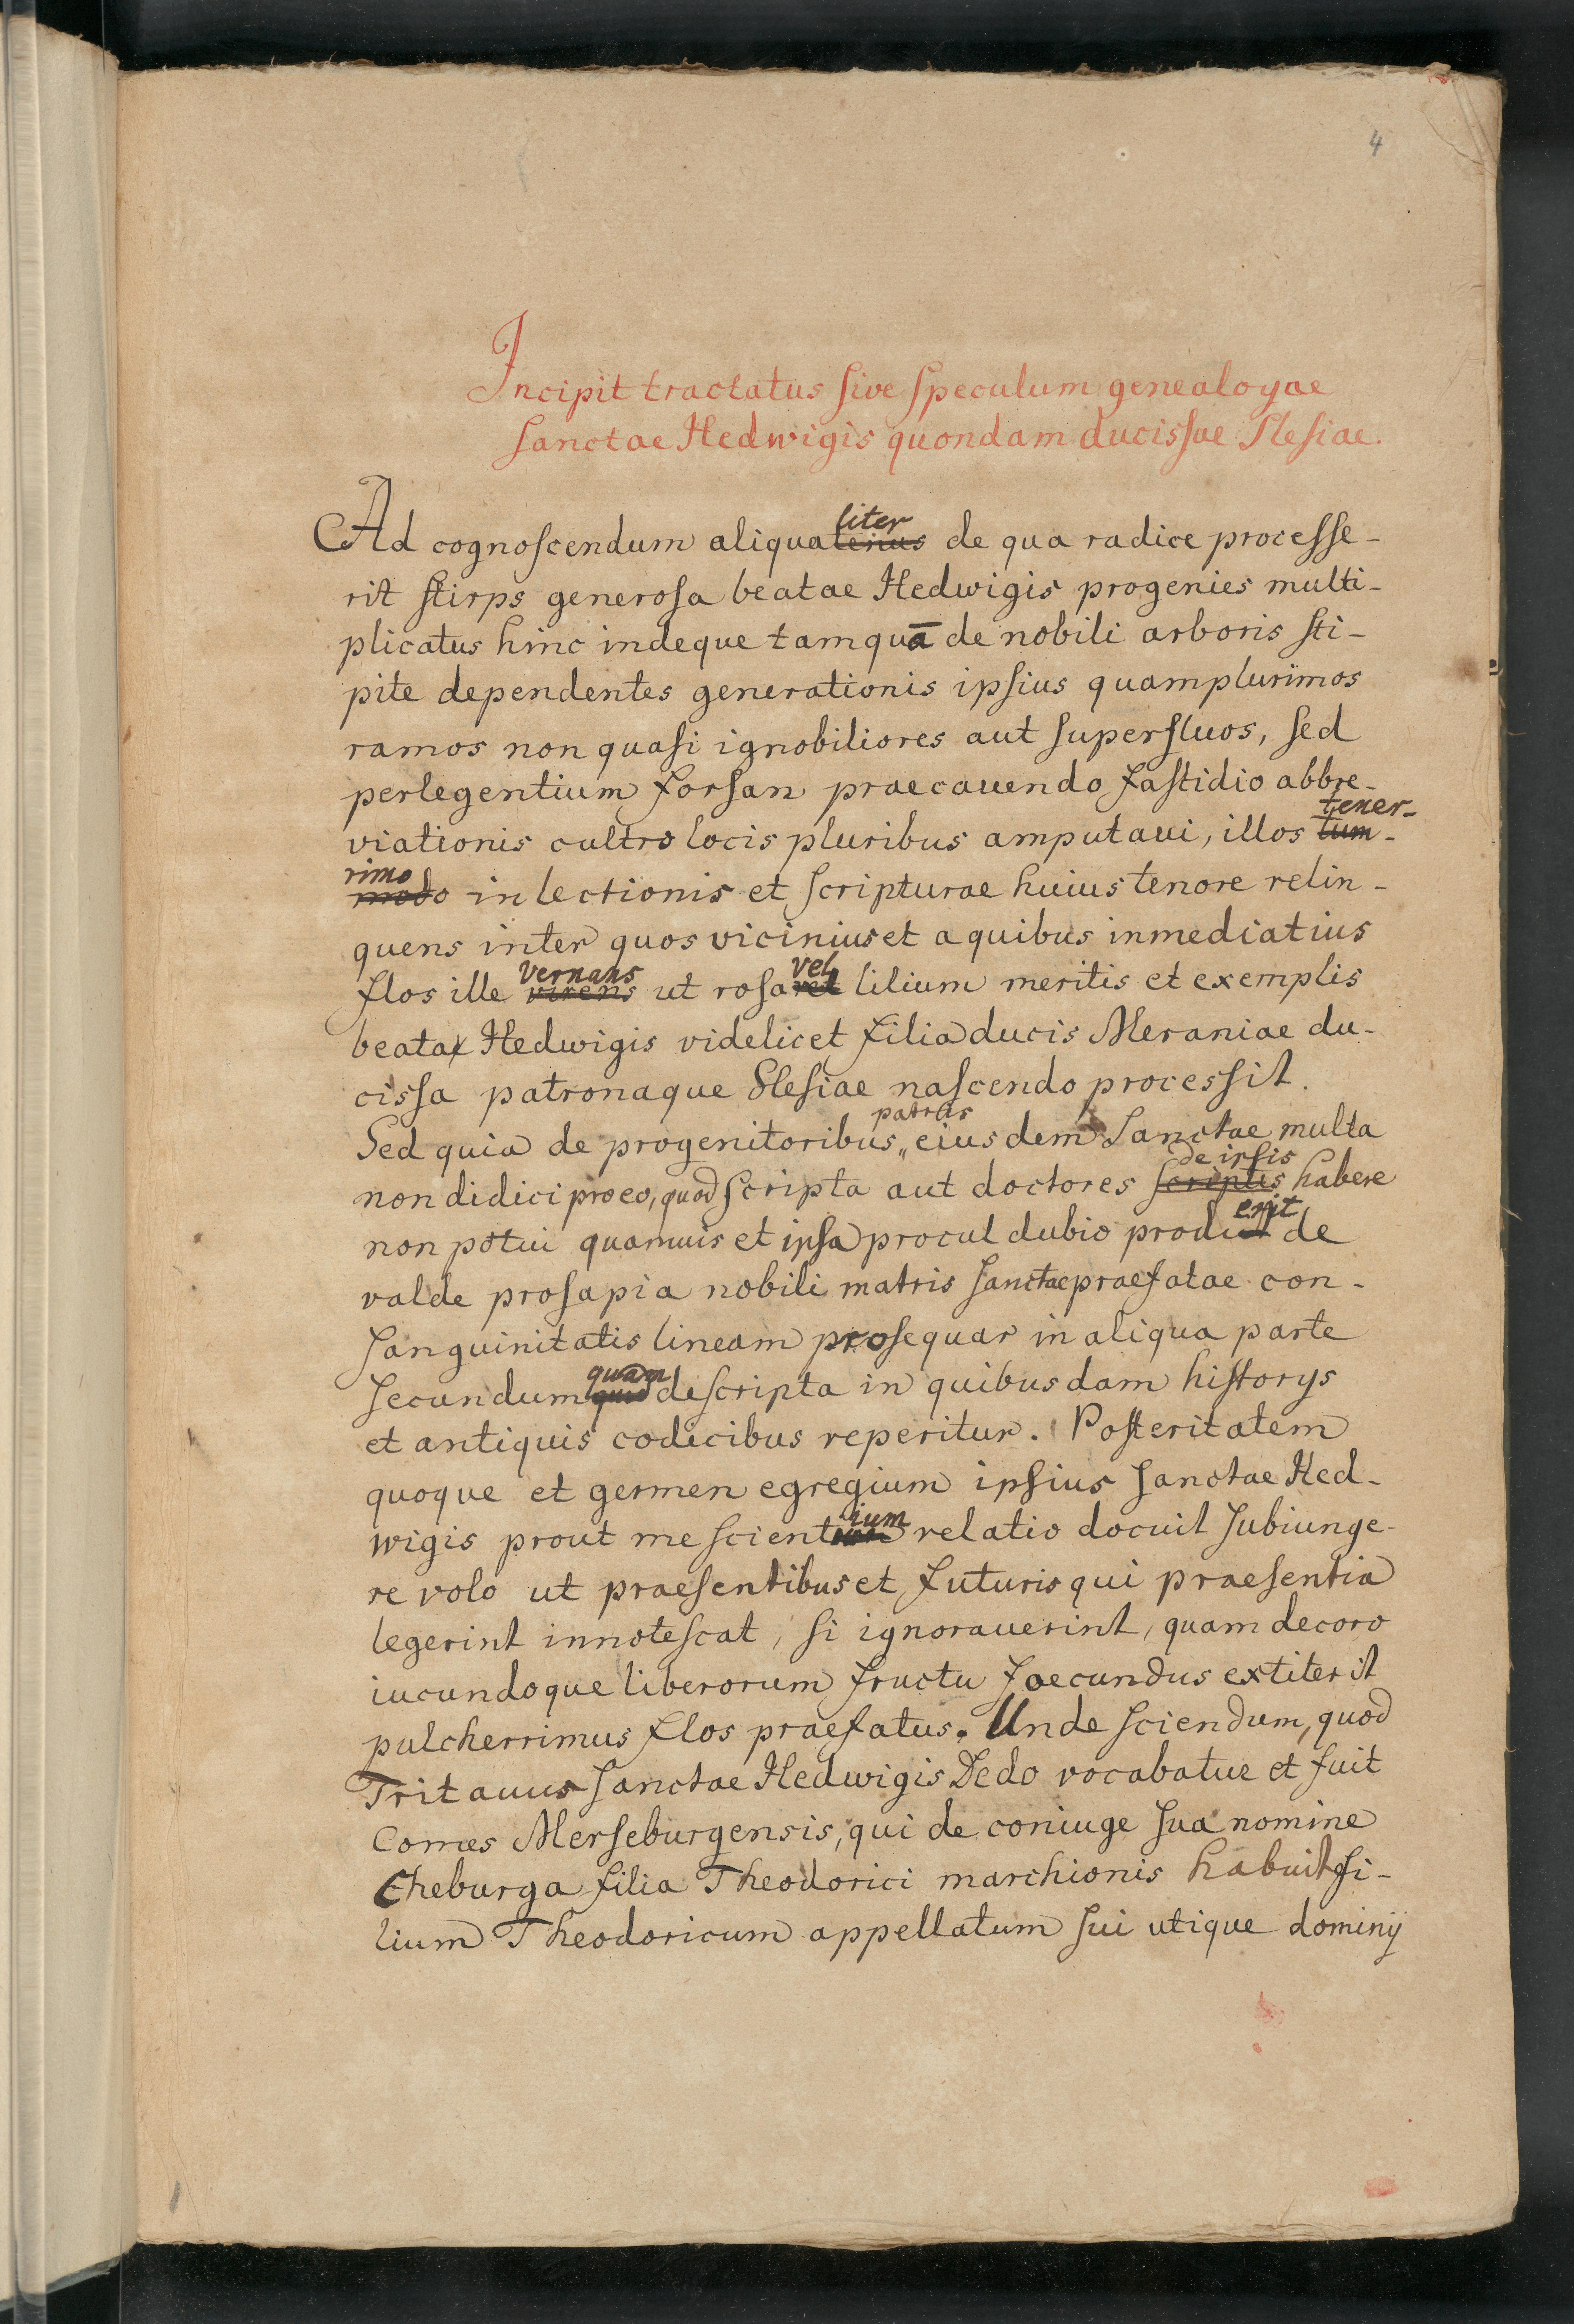 4
Incipit tractatus ſive ſpeculum genealoyae
ſanctae Hedwigis quondam ducisſae Sleſiae.
liter
Ad cognoſcendum aliquatenus de qua radice proceſſe-
rit ſtirps generoſa beatae Hedwigis progenies multi-
plicatus hinc indeque tamquā de nobili arboris ſti-
pite dependentes generationis ipſius quamplurimos
ramos non quaſi ignobiliores aut ſuperfluos, ſed
perlegentium forſan praecauendo faſtidio abbre-
tener-
viationis cultro locis pluribus amputaui, illos tum-
rimo
modo in lectionis et ſcripturae huius tenore relin-
quens inter quos vicinius et a quibus inmediatius
vernans vel
flos ille virens ut roſa vel lilium meritis et exemplis
beata Hedwigis videlicet filia ducis Meraniae du-
ciſſa patronaque Sleſiae naſcendo procesſit.
patris
Sed quia de progenitoribus „ eiusdem Sanctae multa
de ipſis
non didici pro eo, quod ſcripta aut doctores ſcriptis habere
erit
non potui quamuis et ipſa procul dubio prodiit de
valde proſapia nobili matris ſanctae praefatae con-
ſanguinitatis lineam proſequar in aliqua parte
quam
ſecundum quod deſcripta in quibusdam hiſtorys
et antiquis codicibus reperitur. Poſteritatem
quoque et germen egregium ipſius ſanctae Hed-
ium
wigis prout me ſcient relatio docuit ſubiunge-
re volo ut praeſentibus et futuris qui praeſentia
legerint innoteſcat, ſi ignorauerint, quam decoro
iucundoque liberorum fructu foecundus extiterit
pulcherrimus flos praefatus. Unde ſciendum, quod
Tritauus ſanctae Hedwigis Dedo vocabatur et fuit
Comes Merſeburgensis, qui de coniuge ſua nomine
Theburga filia Theodorici marchionis habuit fi-
lium Theodoricum appellatum ſui utique dominÿ